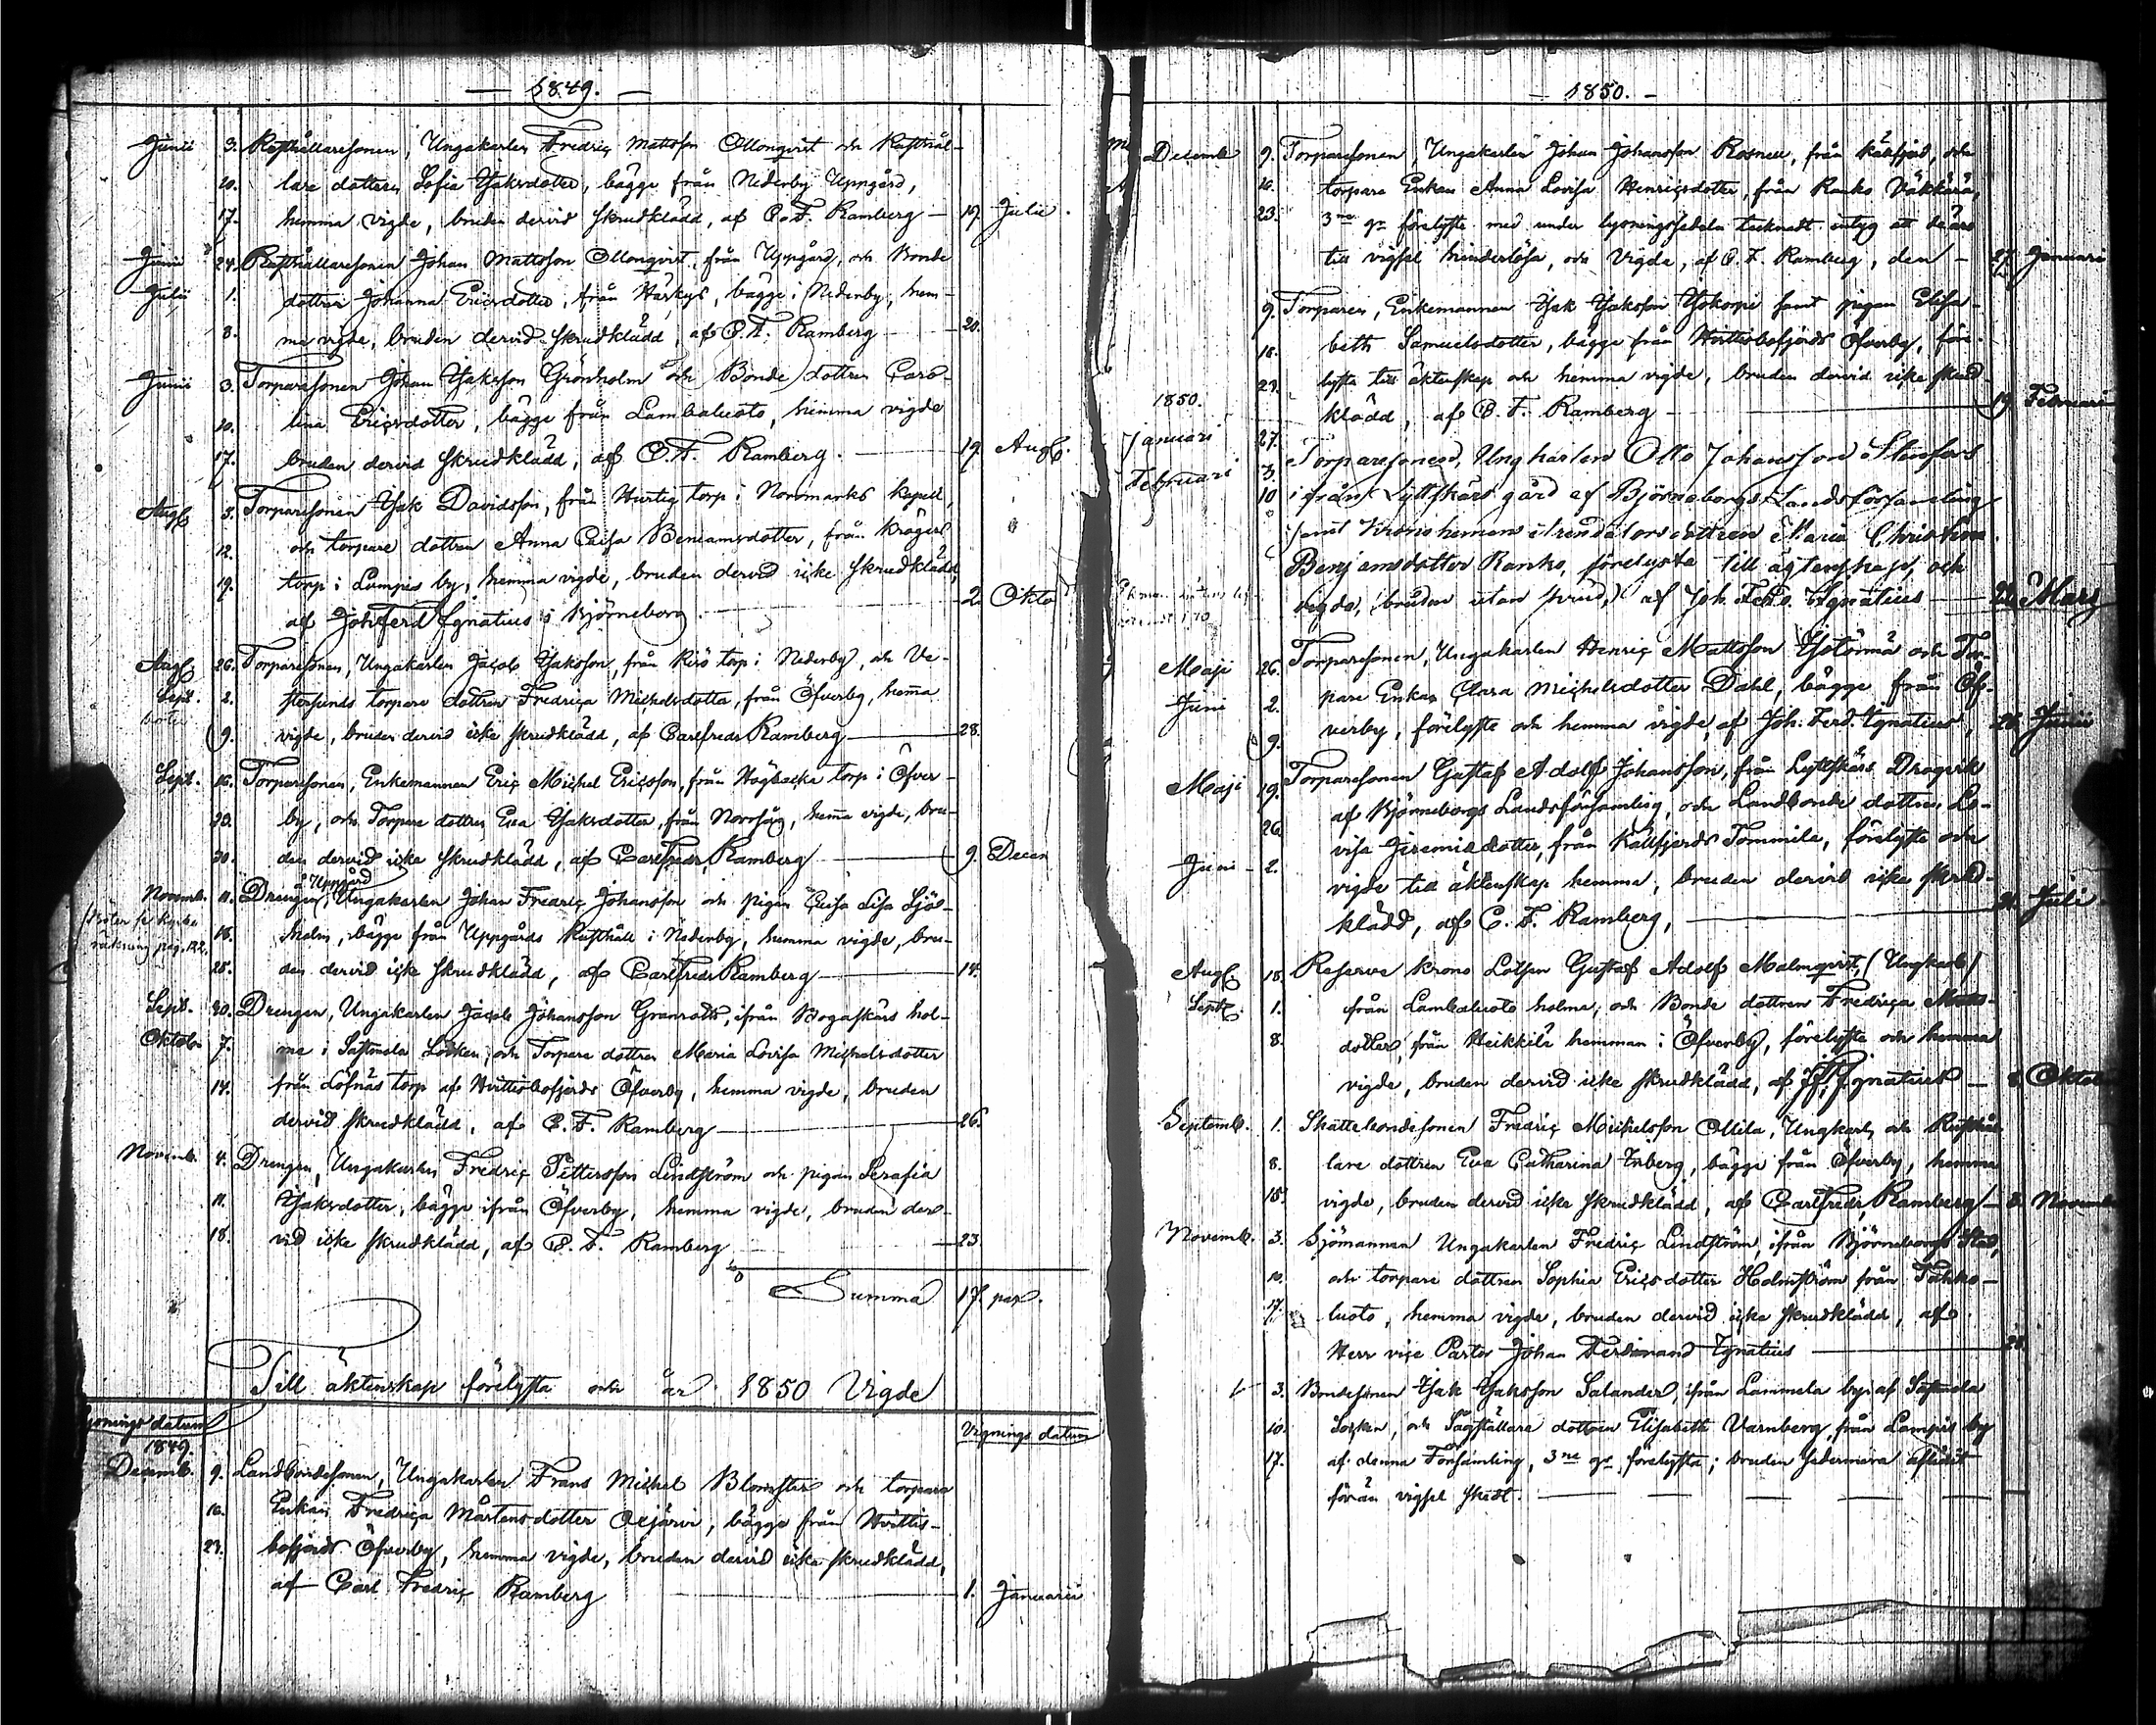 1849.
Junii 3. Rusthållaresonen, Ungakarlen Fredric Mattsson Ollonqvist och Rusthål-
10. lare dottren Sofia Isaksdotter, bägge från Nederby Uppgård,
17. hemma vigde, bruden dervid skrudklädd, af C. F. Ramberg — 19. Julii.
Junii 24. Rusthållaresonen Johan Mattsson Ollonqvist, från Uppgård, och Bonde
Julii 1. dottren Johanna Ericsdotter, från Härkys, bägge i Nederby, hem-
8. ma vigde, bruden dervid skrudklädd, af C. F. Ramberg — 20.
Junii 3. Torparesonen Johan Isaksson Grönholm och Bonde dottren Caro-
10. lina Ericsdotter, bägge från Lambaluoto, hemma vigde
17. bruden dervid skrudklädd, af C. F. Ramberg. — 19. Aug.
Aug. 5. Torparesonen Isak Davidsson, från Hurtig torp i Norrmarks kapell,
12. och torpare dottren Anna Caisa Beniamsdotter, från Krögers
19. torp i Lampis by, hemma vigde, bruden dervid icke skrudklädd,
af Joh. Ferd. Ignatius i Björneborg. — 2. Okto
Aug. 26. Torparesonen, Ungakarlen Jacob Isaksson, från Kirs torp i Nederby, och Ve-
Sept. 2. sterlunds torpare dottren Fredrica Michelsdotter, från Öfverby, hema
9. vigde, bruden dervid icke skrudklädd, af Carl Fredr. Ramberg — 28.
Sept. 16. Torparesonen, Enkemannen Eric Michel Ericsson, från Högbacka torp i Öfver-
23. by, och Torpare dottren Eva Isaksdotter, från Norrsäng, hema vigde, bru-
30. den dervid icke skrudklädd, af Carl Fredr. Ramberg — 9. Decem
å Uppgård
Novemb. 11. Drengen, Ungakarlen Johan Fredric Johansson och pigan Caisa Lisa Sjö-
18. holm, bägge från Uppgårds Rusthåll i Nederby, hemma vigde, bru-
räkning pag. 122.
25. den dervid icke skrudklädd, af Carl Fredr. Ramberg — 14.
Sept. 30. Drengen, Ungakarlen Jacob Johansson Granroth, ifrån Bogaskärs hol-
Oktob. 7. me i Sastmola Socken, och Torpare dottren Maria Lovisa Michelsdotter
14. från Löfnäs torp af Hvittisbofjerds Öfverby, hemma vigde, bruden
dervid skrudklädd, af C. F. Ramberg — 26.
Novemb. 4. Drengen, Ungakarlen Fredric Pettersson Lindström och pigan Serafia
11. Isaksdotter, bägge ifrån Öfverby, hemma vigde, bruden der-
18. vid icke skrudklädd, af C. F. Ramberg — 23.
Summa 17. par.
Till äktenskap förelysta och år 1850 Vigde
ysnings datum Vignings datum
1849.
Decemb. 9. Landbondesonen, Ungakarlen Frans Michel Blomster och torpare
16. Enkan Fredrica Mårtensdotter Oxjärvi, bägge från Hvittis-
23. bofjerds Öfverby, hemma vigde, bruden dervid icke skrudklädd,
af Carl Fredric Ramberg — 1. Januarii
1850.
Decemb 9. Torparesonen, Ungakarlen Johan Johansson Rosnell, från Källfjerd, och
16. torpare Enkan Anna Lovisa Henricsdotter, från Ranko Väkkärä,
23. 3ne gr förelyste med under lysningssedeln tecknadt intyg att de äro
till vigsel hinderlösa, och Vigde, af C. F. Ramberg, den — 27. Januari
9. Torparen, Enkemannen Isak Isaksson Isokorpi samt pigan Elisa-
16. beth Samuelsdotter, bägge från Hvittisbofjerds Öfverby, före-
23. lysta till äktenskap och hemma vigde, bruden dervid icke skrud-
klädd, af C. F. Ramberg — 19. Februari
1850.
Januari 27. Torparesonen, Ungkarlen Otto Johansson Stenfors
Februari 3.
10 ifrån Lyttskärs gård af Björneborgs Landsförsamling
samt Kronohemmans dottren Maria Christina
Benjamsdotter Ranko, förelysta till ägtenskap, och
vigde, (bruden utan skrud,) af Joh. Ferd. Ignatius — 22. Mars
Maji 26. Torparesonen, Ungakarlen Henric Mattsson Isotörmä och Tor-
Juni 2. pare Enkan Clara Michelsdotter Dahl, bägge från Öf-
9. verby, förelyste och hemma vigde, af Joh. Ferd. Ignatius, 28. Junii
Maji 19. Torparesonen Gustaf Adolf Johansson, från Lyttskärs Dragvik
26. af Björneborgs Landsförsamling, och Landbonde dottren Lo-
Juni 2. visa Jeremiædotter, från Källfjerds Tommila, förelyste och
vigde till äktenskap hemma, bruden dervid icke skrud-
klädd, af C. F. Ramberg, — 21. Juli.
Aug. 18. Reserve Krono Lotsen Gustaf Adolf Malmqvist, (Ungkarl)
Sept. 1. från Lambaluoto holme, och Bonde dottren Fredrica Matts-
8. dotter, från Heikkilä hemman i Öfverby, förelyste och hemma
vigde, bruden dervid icke skrudklädd, af J. F. Ignatius — 8. Oktob
Septemb. 1. Skattebondesonen Fredric Michelsson Ollila, Ungkarl, och Rusthål-
8. lare dottren Eva Catharina Inberg, bägge från Öfverby, hemma
15. vigde, bruden dervid icke skrudklädd, af Carl Fredr. Ramberg — 8. Novemb
Novemb. 3. Sjömannen Ungakarlen Fredric Lindström, ifrån Björneborgs Stad,
10. och torpare dottren Sophia Ericsdotter Holmström från Tahko-
17. luoto, hemma vigde, bruden dervid icke skrudklädd, af
Herr vice Pastor Johan Ferdinand Ignatius — 28.
3. Bondesonen Isak Isaksson Salander, ifrån Lammela by af Sastmola
10. Socken, och Sågställare dottren Elisabeth Varnberg, från Lampis by
17. af denna Församling, 3ne gr förelysta; bruden sedermera afliden
förän vigsel skedt.